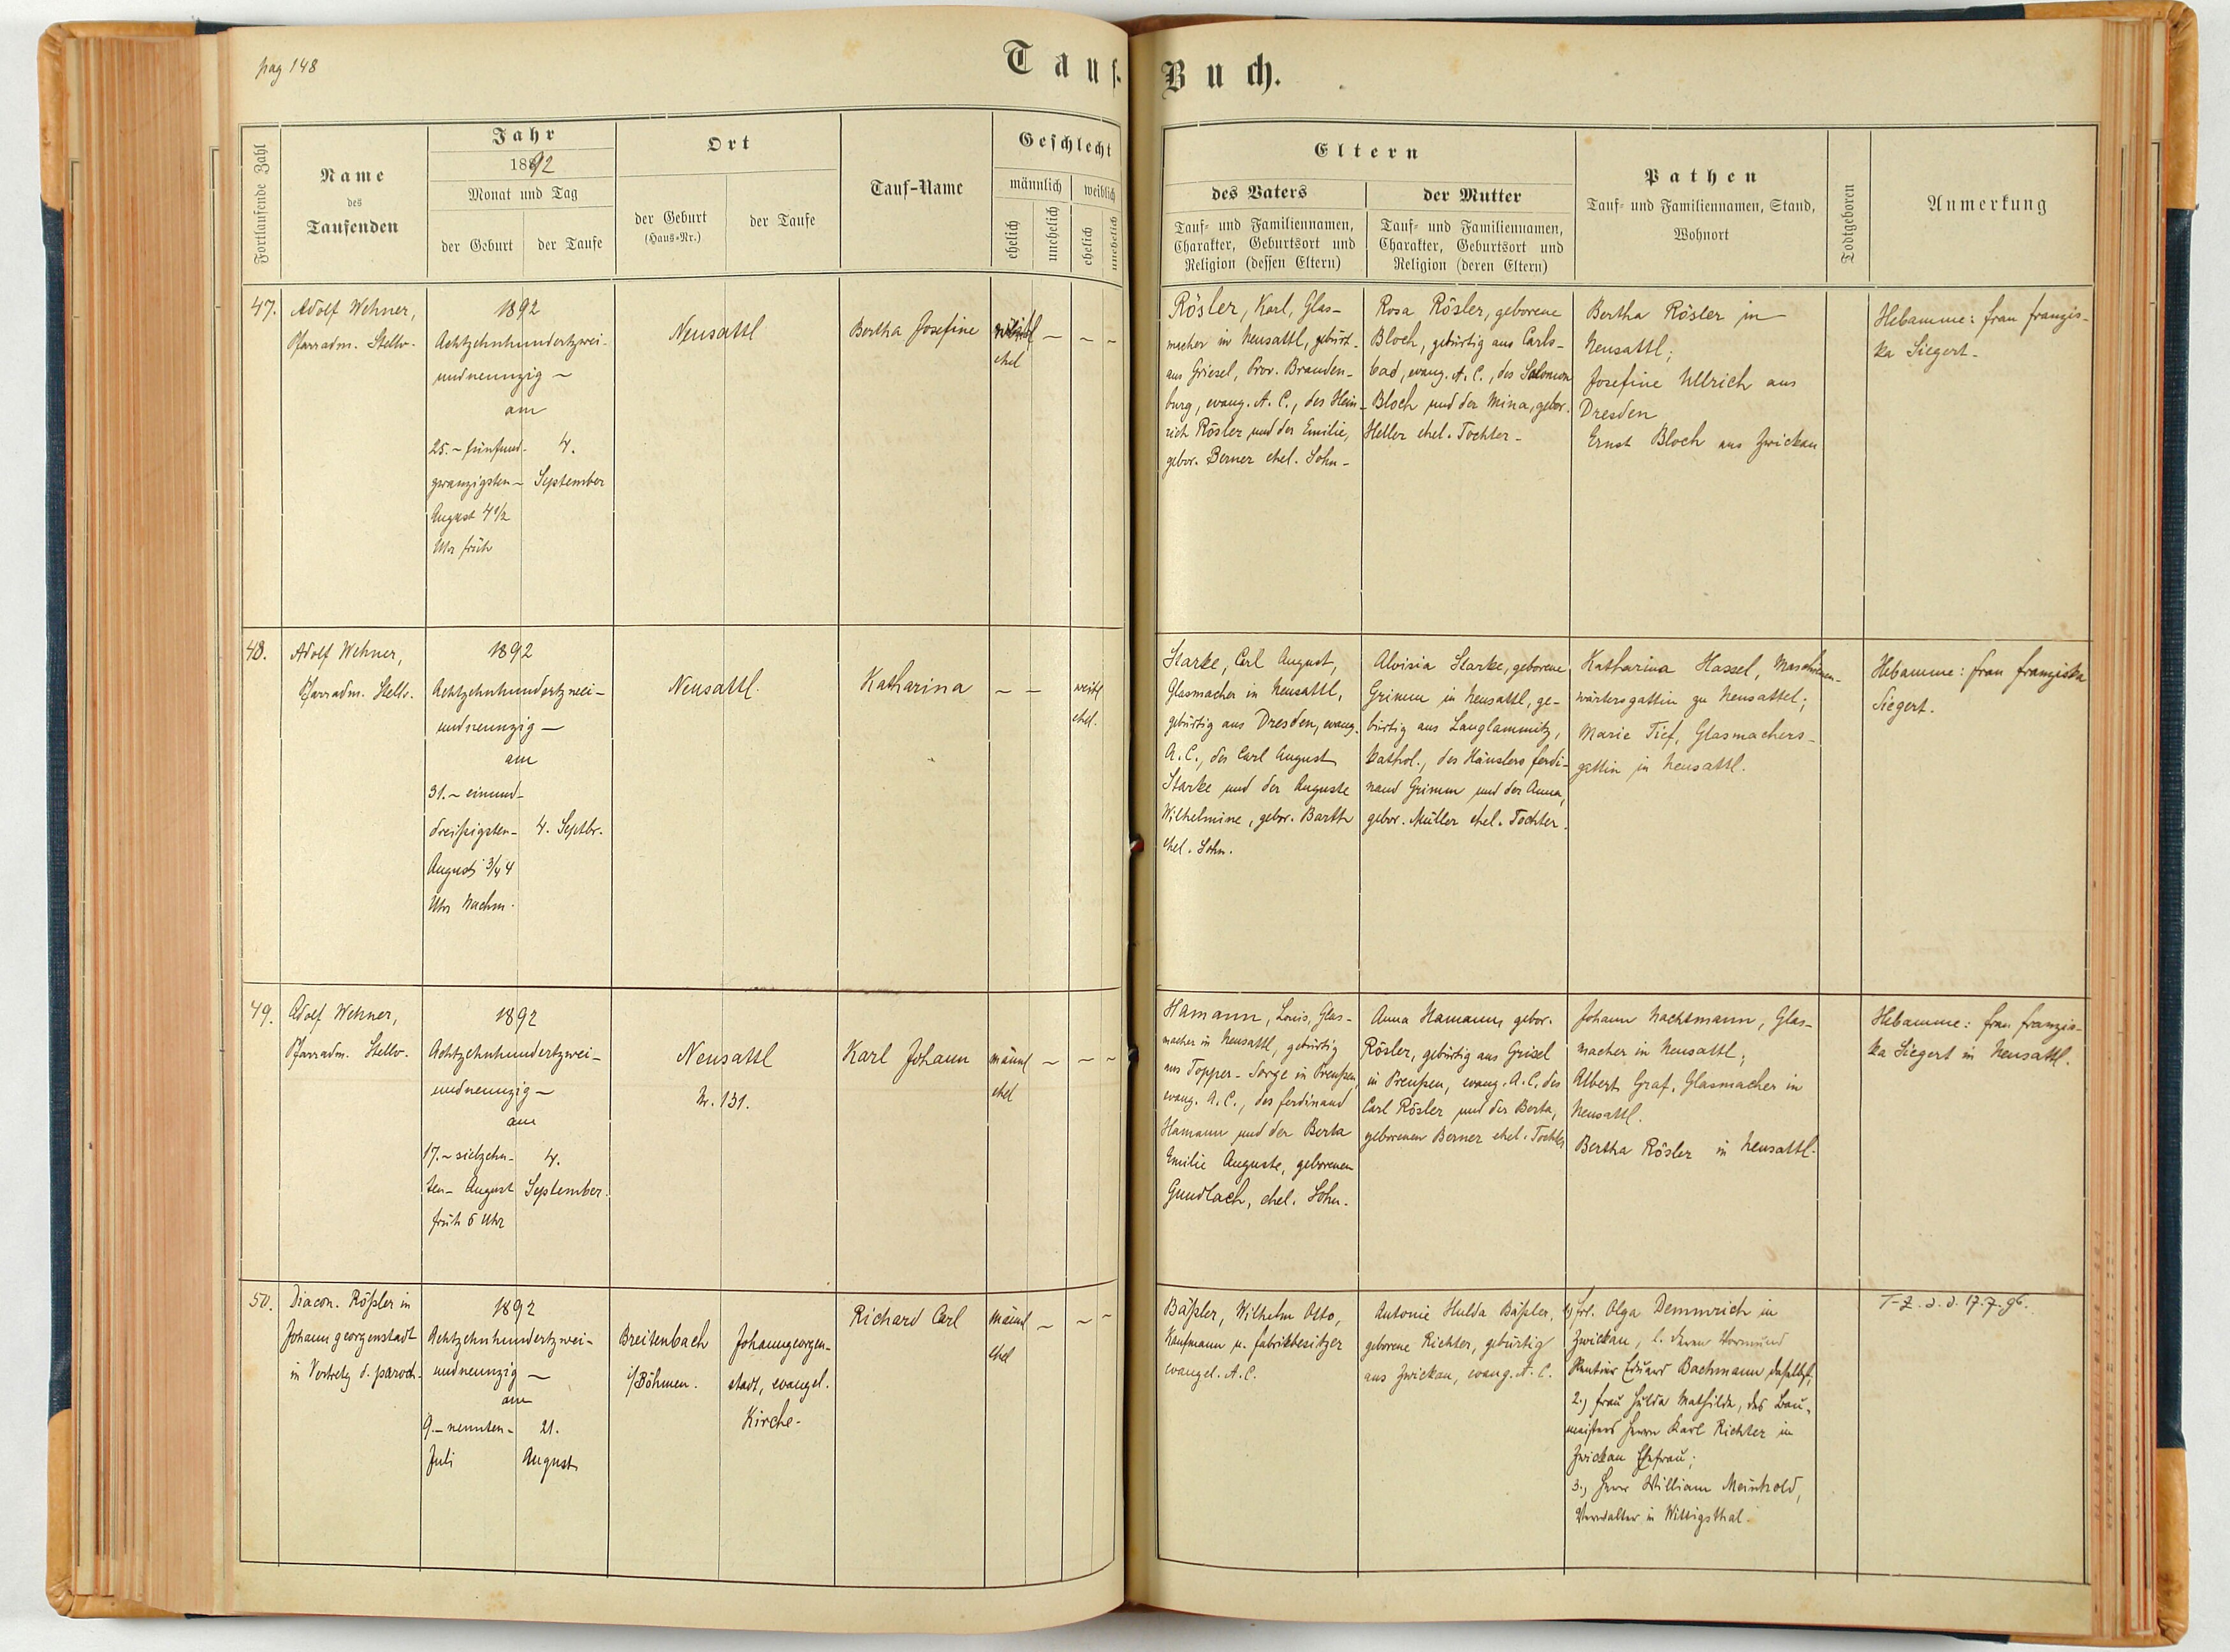 pag 148
Tauf-Buch.
Fortlaufende Zahl
Name
des
Taufenden
Jahr
1892
Monat und Tag
der Geburt
der Taufe
Ort
der Geburt
(Haus-Nr.)
der Taufe
Tauf-Name
Geschlecht
männlich
weiblich
ehelich
unehelich
ehelich
unehelich
Eltern
des Vaters
Tauf- und Familiennamen,
Charakter, Geburtsort und
Religion (dessen Eltern)
der Mutter
Tauf- und Familiennamen,
Charakter, Geburtsort und
Religion (deren Eltern)
Pathen
Tauf- und Familiennamen, Stand,
Wohnort
Todtgeboren
Anmerkung
47.
Adolf Wehner,
Pfarradm. Stellv.
1892
Achtzehnhundertzwei-
undneunzig ~
am
25. ~ fünfund-
zwanzigsten ~
August 4 1/2
Uhr früh
4.
September
Neusattl
Bertha Josefine
ehel
~
~
~
Rösler, Karl, Glas-
macher in Neusattl, gebürt.
aus Griesel, Prov. Branden-
burg, evang. A. C., des Hein-
rich Rösler und der Emilie,
gebor. Berner ehel. Sohn-
Rosa Rösler, geborene
Bloch, gebürtig aus Carls-
bad, evang. A. C., des Salomon
Bloch und der Mina, gebor.
Heller ehel. Tochter-
Bertha Rösler in
Neusattl;
Josefine Ullrich aus
Dresden
Ernst Bloch aus Zwickau
Hebamme: Frau Franzis-
ka Siegert-
48.
Adolf Wehner,
Pfarradm. Stellv.
1892
Achtzehnhundertzwei-
undneunzig ~
am
31. ~ einund-
dreißigsten-
August 3/4 4
Uhr Nachm.
4. Septbr.
Neusattl.
Katharina
~
~
weibl
ehel.
Starke, Carl August,
Glasmacher in Neusattl,
gebürtig aus Dresden, evang.
A. C., des Carl August
Starke und der Auguste
Wilhelmine, gebor. Barth
ehel. Sohn.
Aloisia Starke, geborene
Grimm in Neusattl, ge-
bürtig aus Langlammitz,
kathol., des Häuslers Ferdi-
nand Grimm und der Anna,
gebor. Müller ehel. Tochter.
Katharina Hassel, Maschinen-
wärtersgattin zu Neusattel;
Marie Tief, Glasmachers-
gattin in Neusattl.
Hebamme: Frau Franziska
Siegert.
49.
Adolf Wehner,
Pfarradm. Stellv.
1892
Achtzehnhundertzwei-
undneunzig ~
am
17. ~ siebzehn-
ten- August
früh 5 Uhr
4.
September.
Neusattl
Nr. 131.
Karl Johann
männl
ehel
~
~
~
Hamann, Louis, Glas-
macher in Neusattl, gebürtig
aus Topper-Sorge in Preußen,
evang. A. C., des Ferdinand
Hamann und der Berta
Emilie Auguste, geborenen
Gundlach, ehel. Sohn.
Anna Hamann, gebor.
Rösler, gebürtig aus Grisel
in Preußen, evang. A. C. des
Carl Rösler und der Berta,
geborenen Berner ehel. Tochter
Johann Nachtmann, Glas-
macher in Neusattl;
Albert Graf, Glasmacher in
Neusattl.
Bertha Rösler in Neusattl.
Hebamme: Frau Franzis-
ka Siegert in Neusattl.
50.
Diacon. Rößler in
Johanngeorgenstadt
in Vertretg d. paroch.
1892
Achtzehnhundertzwei-
undneunzig ~
am
9. ~ neunten-
Juli
21.
August
Breitenbach
i/Böhmen.
Johanngeorgen-
stadt, evangel.
Kirche-
Richard Carl
männl
ehel
~
~
~
Bäßler, Wilhelm Otto,
Kaufmann u. Fabrikbesitzer
evangel. A. C.
Antonie Hulda Bäßler,
geborene Richter, gebürtig
aus Zwickau, evang. A. C.
1) Frl. Olga Demmrich in
Zwickau, l. deren Vormund
Rentier Eduard Bachmann daselbst,
2., Frau Hulda Mathilde, des Bau-
meisters Herrn Karl Richter in
Zwickau Ehefrau;
3., Herr William Meinhold,
Verwalter in Wittigsthal.
T-Z. d. d. 17.7.96.